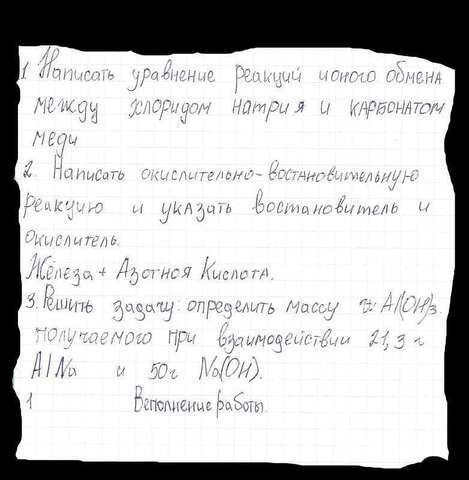 1 Написать уравнение реакций ионого обмена
между хлоридом натрия и карбонатом
меди
2. Написать окислительно-востановительную
реакцию и указать востановитель и
окислитель.
Железа + Азотноя Кислота.
3. Решить задачу: определить массу Al(OH)3
получаемого при взаимодействии 21,3 г
AlNa и 50г Na(OH).
1 Веполнение работы.